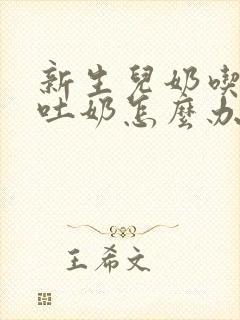 新生兒奶喫
吐奶怎麼办
王希文